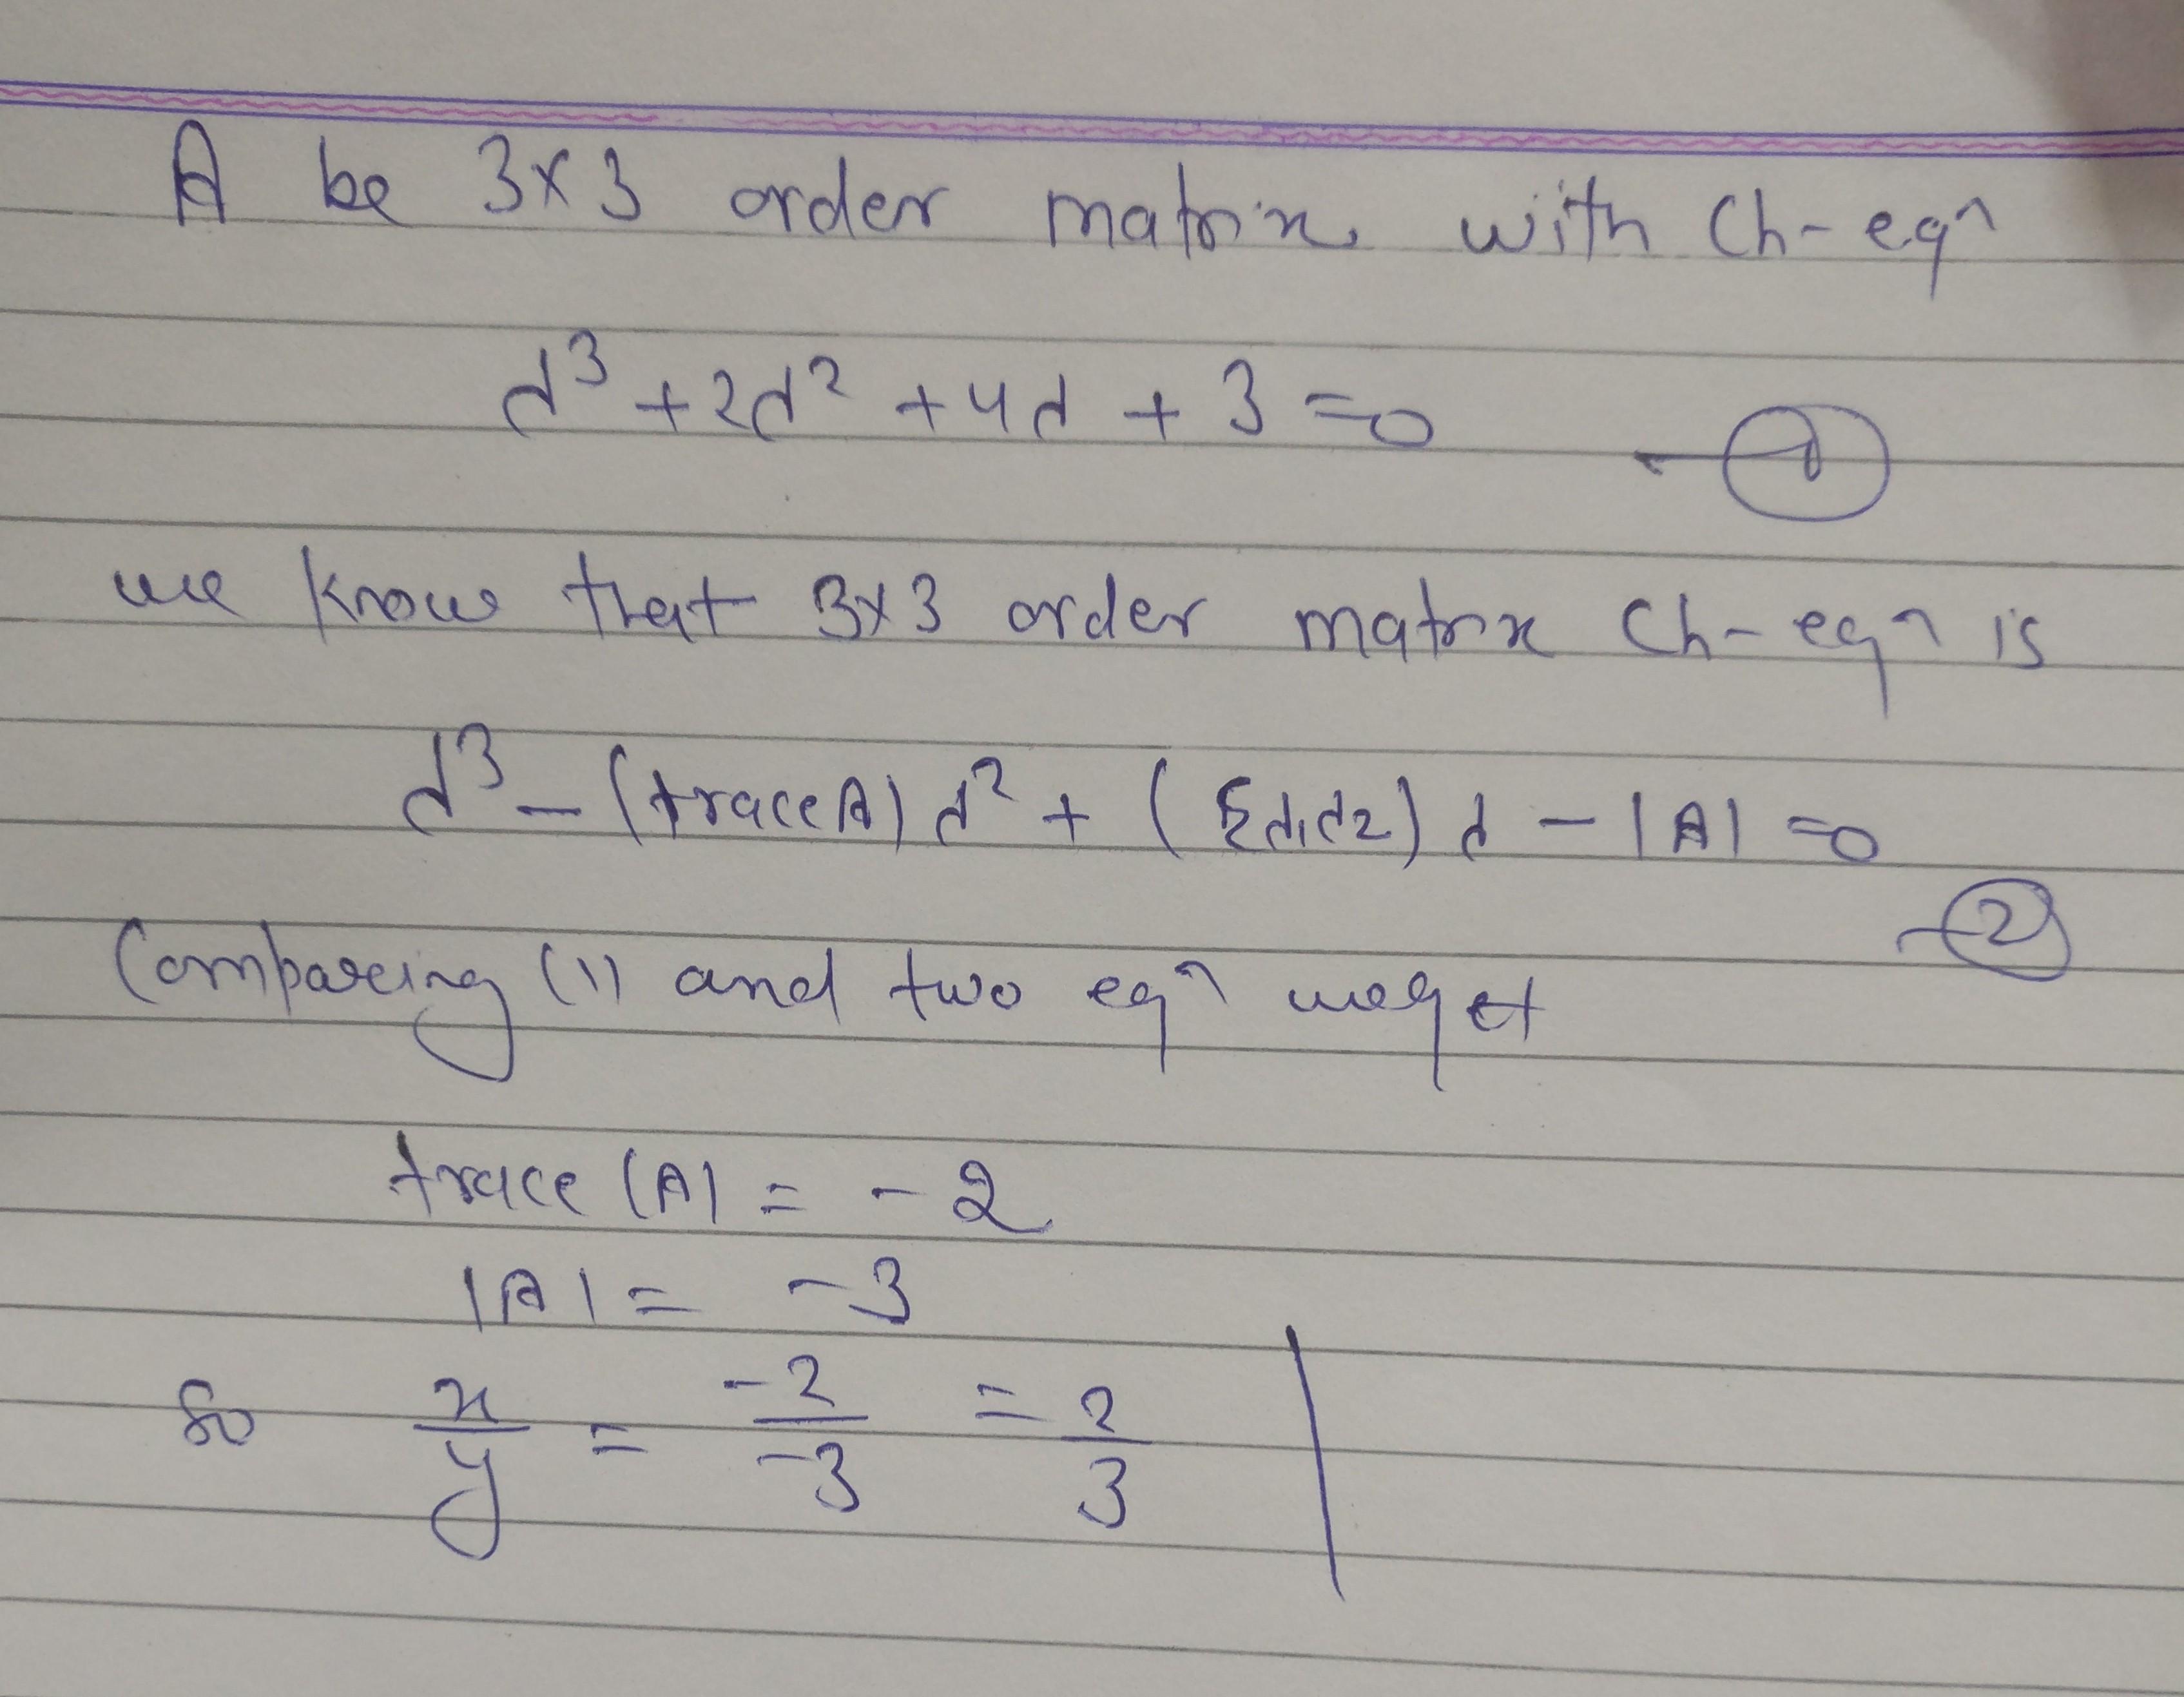 A be 3×3 order matrix with Ch-eqⁿ
d³ + 2d² + 4d + 3 = 0 — ①
we know that 3×3 order matrix Ch-eqⁿ is
d³ - (trace A) d² + (Σd₁d₂) d - |A| = 0
— ②
Comparing (1) and two eqⁿ we get
trace (A) = - 2
|A| = - 3
So x/y = -2/-3 = 2/3